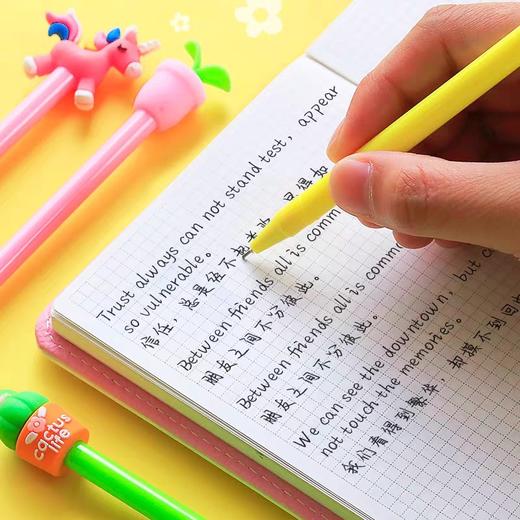 Trust always can not stand test, appear
so vulnerable.
信任，总是经不起考验，显得如
Between friends all is comm
朋友之间不分彼此。
Between friends all is comm
朋友之间不分彼此。
We can see the downtown, but c
not touch the memories.
我们看得到繁华，却摸不到回忆
cactus
life